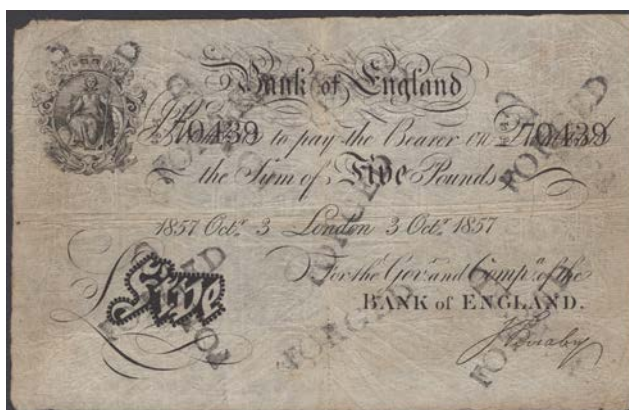 Bank of England
70439 70439
to pay the Bearer on
the Sum of Five Pounds
1857 Octr. 3 London 3 Octr. 1857
£Five
For the Govr. and Compa. of the
BANK of ENGLAND.
FORGED
FORGED
FORGED
FORGED
FORGED
FORGED
FORGED